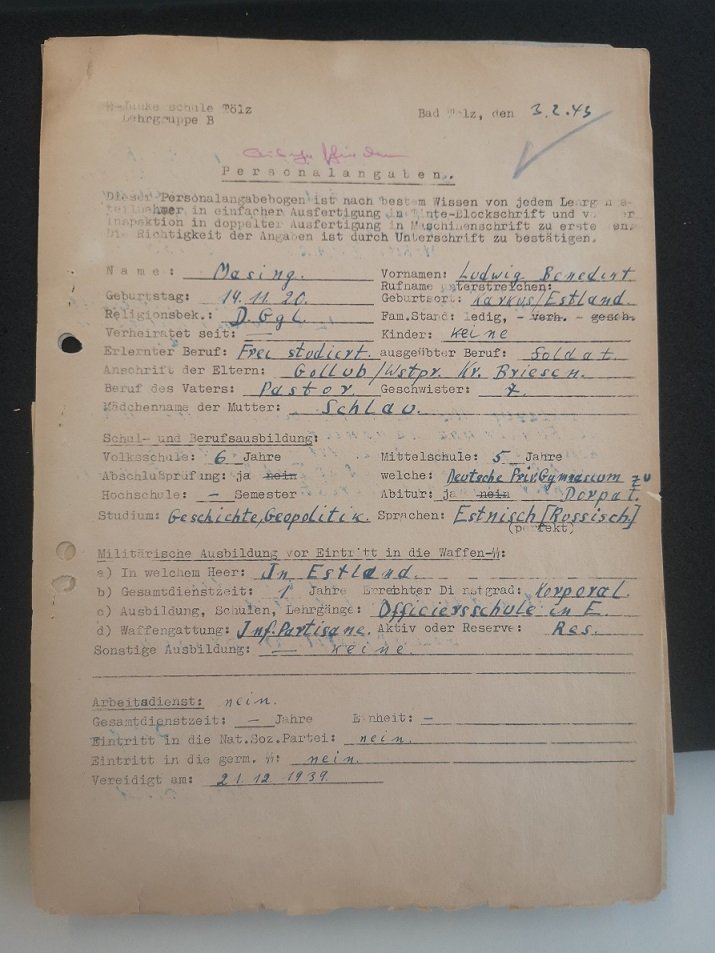 Junkerschule Tölz
Lehrgruppe B
Bad Tölz, den 3.2.43
Personalangaben.
Dieser Personalangabebogen ist nach bestem Wissen von jedem
in einfacher Ausfertigung in Tinte-Blockschrift und
Inspektion in doppelter Ausfertigung in Maschinenschrift zu
Die Richtigkeit der Angaben ist durch Unterschrift zu bestätigen.
Name: Masing. Vornamen: Ludwig Benedikt
Rufname unterstreichen:
Geburtstag: 14.11.20. Geburtsort: Karkus/Estland.
Religionsbek.: D.Ggl. Fam.Stand: ledig, - verh. - gesch.
Verheiratet seit: — Kinder: Keine
Erlernter Beruf: Frei studiert. ausgeübter Beruf: Soldat.
Anschrift der Eltern: Gollub/Wstpr. Kr. Briesen.
Beruf des Vaters: Pastor. Geschwister: 7.
Mädchenname der Mutter: Schlau.
Schul- und Berufsausbildung:
Volksschule: 6 Jahre Mittelschule: 5 Jahre
Abschlußprüfung: ja nein welche: Deutsche Priv.Gymnasium zu
Hochschule: — Semester Abitur: ja nein Dorpat.
Studium: Geschichte, Geopolitik. Sprachen: Estnisch [Russisch]
(perfekt)
Militärische Ausbildung vor Eintritt in die Waffen-SS:
a) In welchem Heer: In Estland.
b) Gesamtdienstzeit: 1 Jahre Erreichter Dienstgrad: Korporal.
c) Ausbildung, Schulen, Lehrgänge: Officiersschule in E.
d) Waffengattung: Inf.Partisane. Aktiv oder Reserve: Res.
Sonstige Ausbildung: — keine.
Arbeitsdienst: nein.
Gesamtdienstzeit: — Jahre Einheit: —
Eintritt in die Nat.Soz.Partei: nein.
Eintritt in die germ. SS: nein.
Vereidigt am: 21.12.1939.